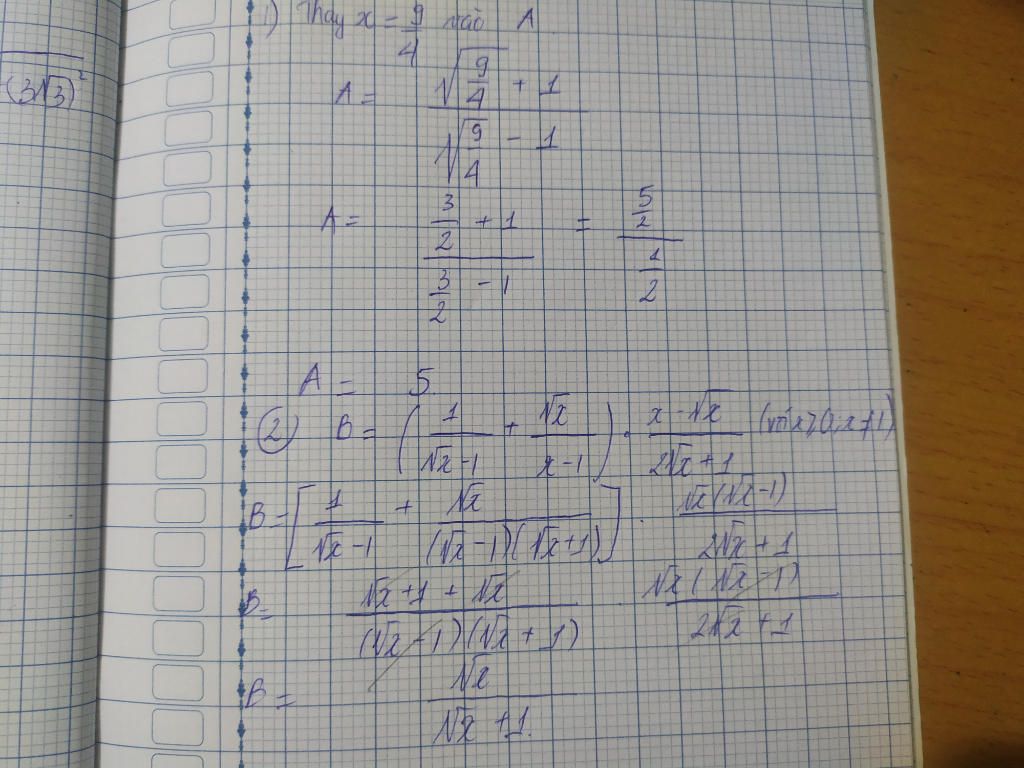 (3√3)²
1) Thay x = 9/4 vào A
A = (√(9/4) + 1)/(√(9/4) - 1)
A = (3/2 + 1)/(3/2 - 1) = (5/2)/(1/2)
A = 5
② B = (1/(√x-1) + √x/(x-1)) . (x-√x)/(2√x+1) (với x≥0, x≠1)
B = [1/(√x-1) + √x/((√x-1)(√x+1))] . √x(√x-1)/(2√x+1)
B = (√x+1+√x)/((√x-1)(√x+1)) . √x(√x-1)/(2√x+1)
B = √x/(√x+1).